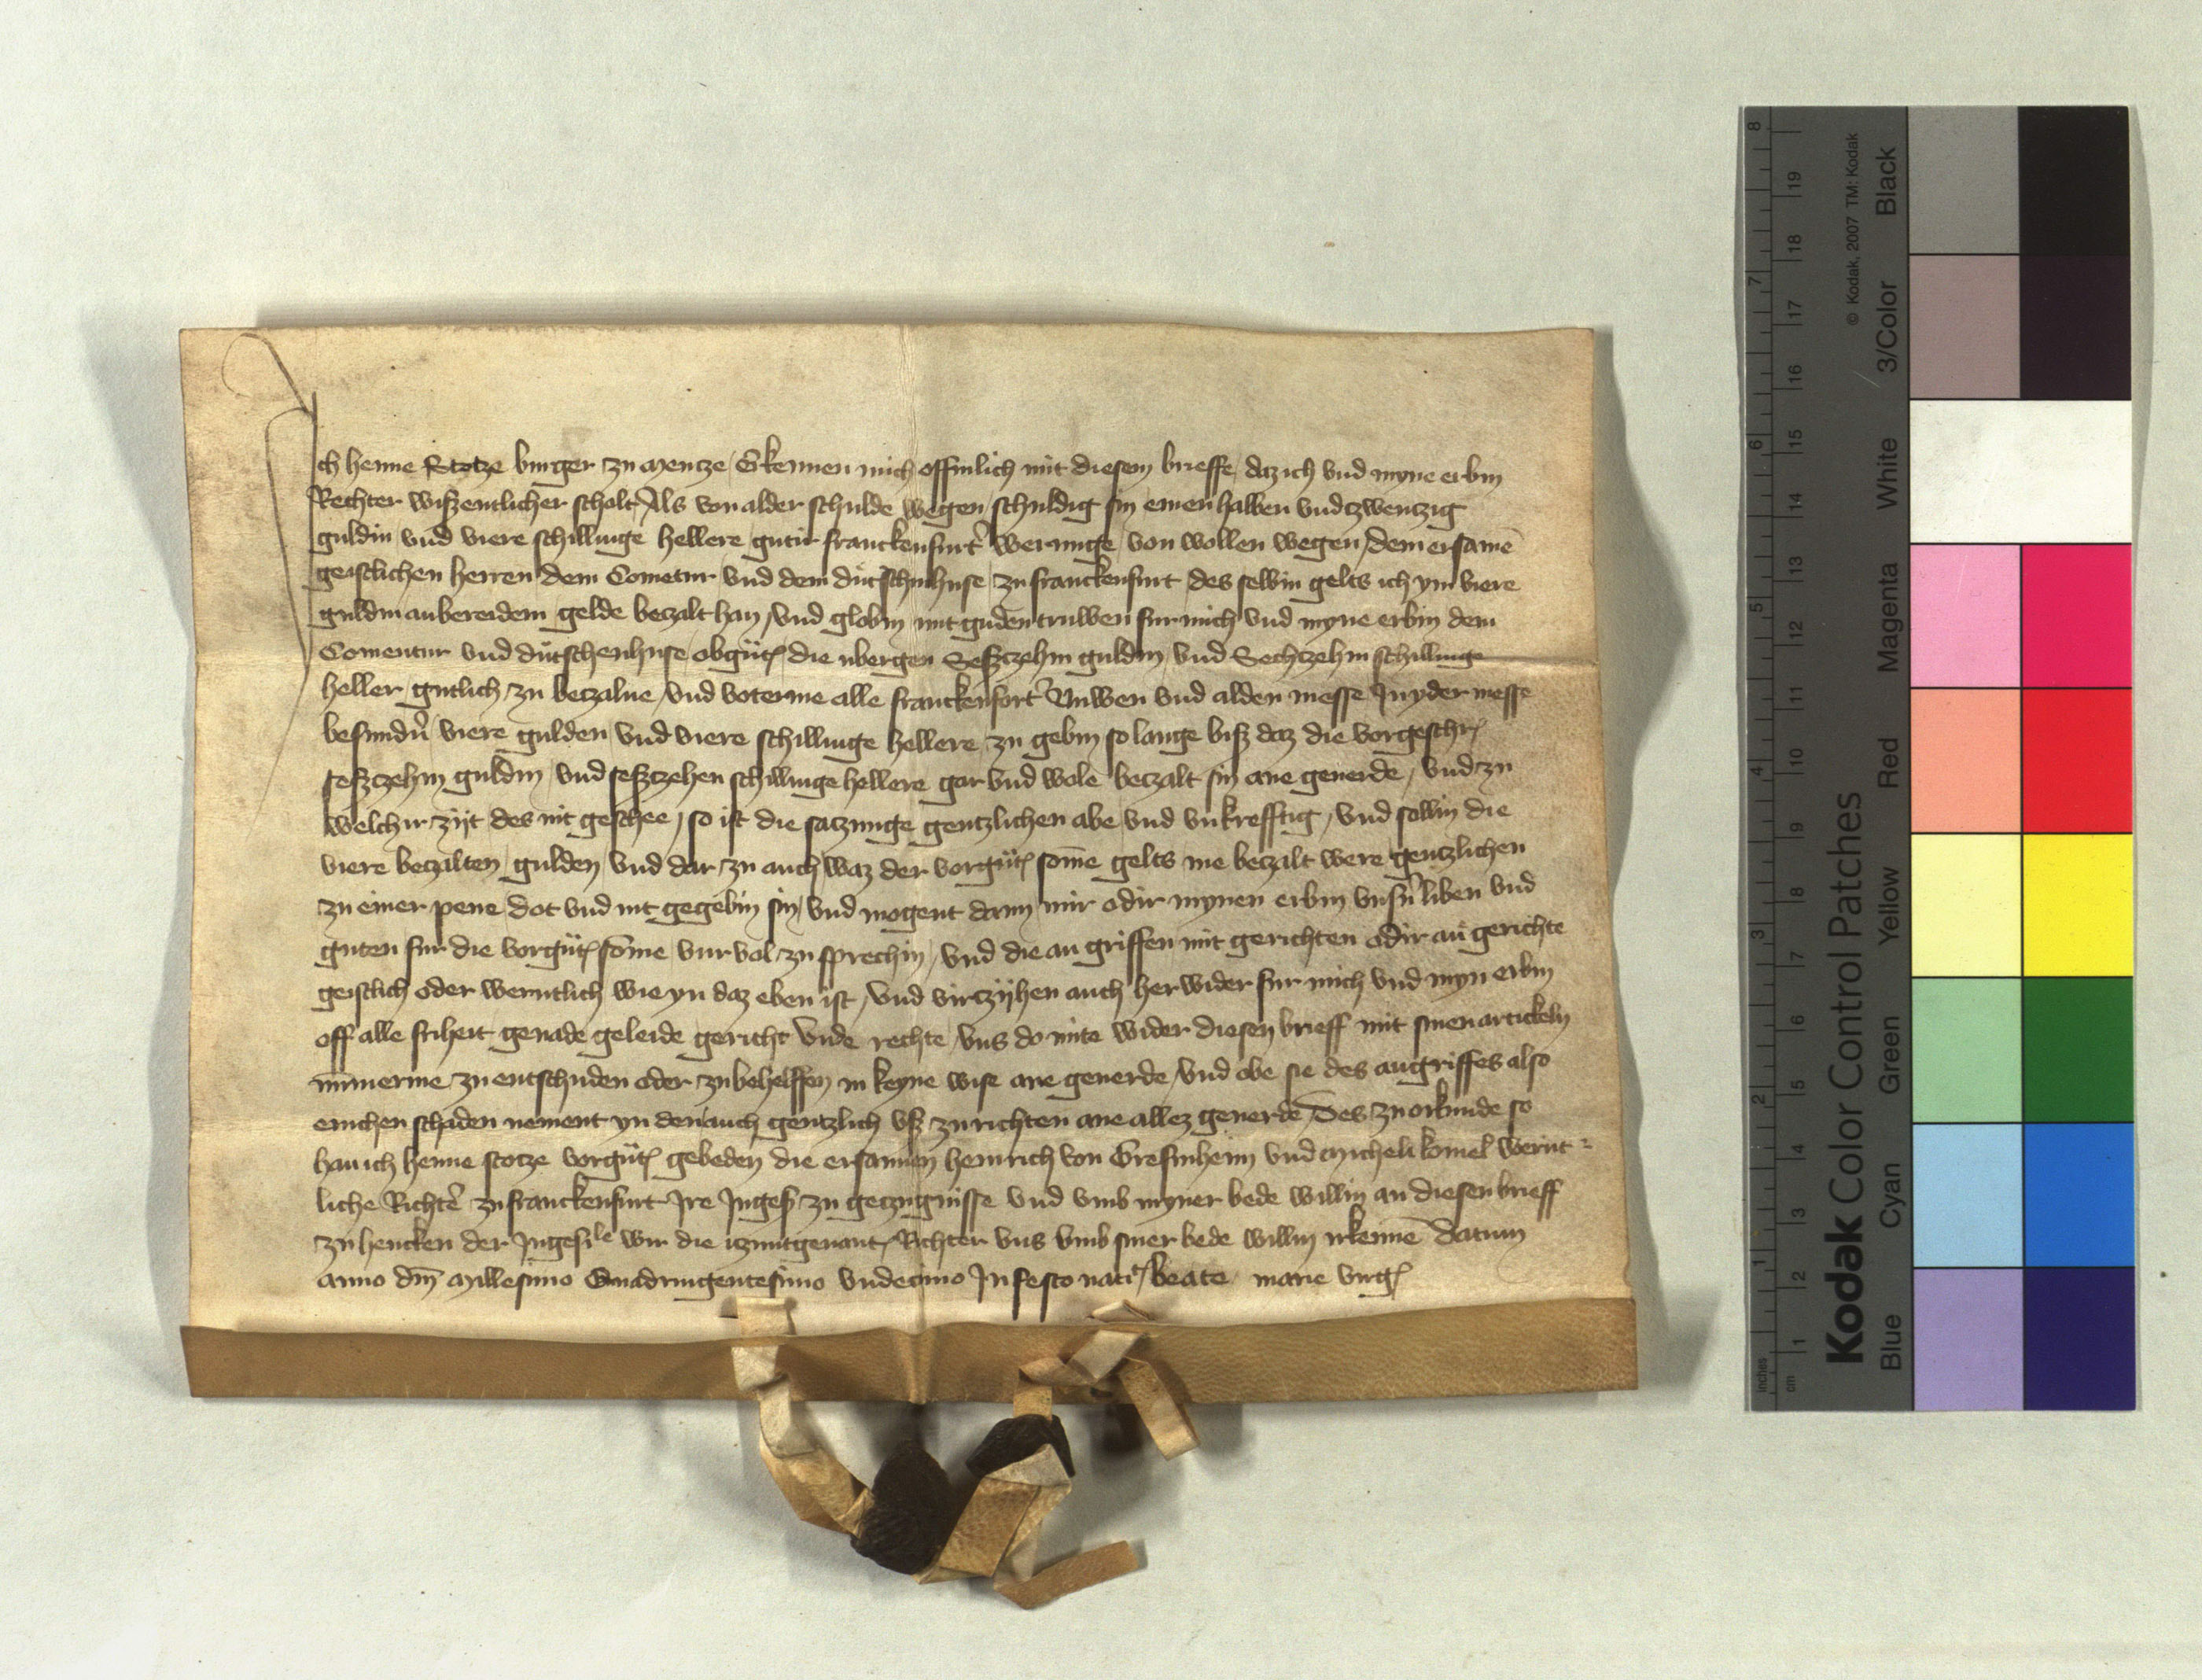 Ich henne Stotze burger zu mentze Erkennen mich offinlich mit diesem brieffe daz ich vnd myne erbin
Rechter wißentlicher scholt Als von alder schulde wegen schuldig sin einen halben vnd zwentzig
guldin vnd viere schillinge hellere gutir franckenfurt' werunge von wollen wegen dem ersamē
geistlichen herren dem Cometur vnd dem dutschinhuse zu franckenfurt des selbin gelts ich ym viere
guldin an bereidem gelde betzalt han vnd globin mit guden truwen fur mich vnd myne erbin dem
Comentur vnd dutschenhuse obgnt die ubergen Seßtzehin guldin vnd Sechtzehin schillinge
heller gutlich zu betzalne vnd alle franckenfort' Nuwen vnd alden messe In yder messe
besundn' viere gulden vnd viere schillinge hellere zu gebin so lange biß daz die vorgeschr
seßtzehin guldin vnd seßtzehen schillinge hellere gar vnd wole betzalt sin ane geuerde vnd zu
welchir zijt des nit geschee so ist die satzunge gentzlichen abe vnd vnkrefftig vnd sollin die
viere betzalten gulden vnd dar zu auch waz der vorgnt som̄e gelts me betzalt were gentzlichen
zu einer pene dot vnd nit gegebin sin vnd mogent dann mir odir mynen erbin vnsn' liben vnd
guten fur die vorgnt som̄e vur vol zu sprechin vnd die an griffen mit gerichten odir an gerichte
geistlich oder werntlich wie yn daz eben ist vnd virtzijhen auch herwider fur mich vnd myn erbin
off alle friheit genade geleide gericht vnde rechte vns do mite wider diesen brieff mit sinen artickeln
nūmerme zu entschuden oder zu behelffen in keyne wise ane geuerde vnd obe sie des angriffes also
einchen schaden nement yn den auch gentzlich vß zu richten ane allez geuerde Des zu orkunde so
han ich henne stotze vorgnt gebeden die ersamen heinrich von Gresinheim vnd Michel wernt-
liche Richter zu franckenfurt Ire Ingesi zu getzugnisse vnd vmb myner bede willin an diesen brieff
zu hencken der Ingesile wir die itzuntgenant Richter vns vmb siner bede willin irkennē Datum
anno dm̄ Millesimo Quadringentesimo vndecimo In festo nati beate marie virg
Kodak Color Control Patches
© Kodak, 2007 TM: Kodak
Blue Cyan Green Yellow Red Magenta White 3/Color Black
inches 1 2 3 4 5 6 7 8
cm 1 2 3 4 5 6 7 8 9 10 11 12 13 14 15 16 17 18 19